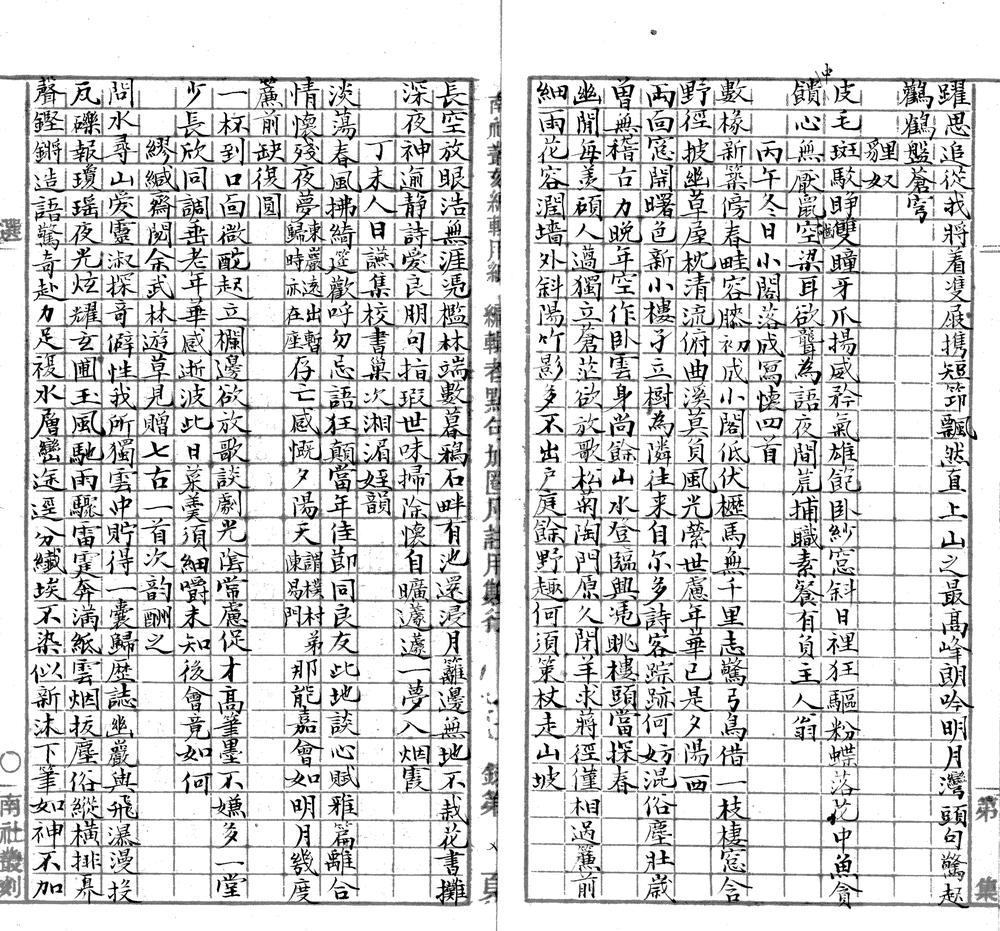 躍思追從我將着雙屐携短笻飄然直上山之最高峰朗吟明月灣頭句驚起
鸛鶴盤蒼穹
貍奴
皮毛斑駁睜雙瞳牙爪揚威矜氣雄飽卧紗窓斜日裡狂驅粉蝶落花中魚貪
饋心無厭鼠空梁耳欲聾為語夜間荒捕職素餐有負主人翁
丙午冬日小閣落成寫懷四首
數椽新築傍春畦容膝初成小閣低伏櫪馬無千里志驚弓鳥借一枝棲窓含
野徑披幽草屋枕清流俯曲溪莫負風光縈世慮年華已是夕陽西
南向窓開曙色新小樓子立樹為隣往來自尔多詩客踪跡何妨混俗塵壯歲
曾無稽古力晚年空作卧雲身尚餘山水登臨興凴眺樓頭當探春
幽閒每羨碩人薖獨立蒼茫欲放歌松菊陶門原久閉羊求蔣徑僅相過簾前
細雨花容潤墻外斜陽竹影多不出户庭餘野趣何須策杖走山坡
長空放眼浩無涯凴檻林端數暮鴉石畔有池還浸月籬邊無地不栽花書攤
深夜神逾靜詩愛良朋句指瑕世味掃除懷自曠蘧蘧一夢入烟霞
丁未人日讌集校書巢次湘湄姪韻
淡蕩春風拂綺筵歡呼勿忘語狂顛當年佳節同良友此地談心賦雅篇離合
情懷殘夜夢東巖遠出暫歸時亦在座存亡感慨夕陽天謂樸村弟東易門那能嘉會如明月幾度
簾前缺復圓
一杯到口面微酡起立欄邊欲放歌談劇光陰常慮促才高筆墨不嫌多一堂
少長欣同調垂老年華感逝波此日菜羹須細嚼未知後會竟如何
繆緘齋閱余武林遊草見贈七古一首次韵酬之
問水尋山愛靈淑探奇僻性我所獨雲中貯得一囊歸歷誌幽巖與飛瀑漫投
瓦礫報瓊瑶夜光炫耀玄圃玉風馳雨驟雷霆奔滿紙雲烟拔塵俗縱橫排奡
聲鏗鏘造語驚奇赴力足複水層巒途逕分纎埃不染似新沐下筆如神不加
第 集
選 南社叢刻